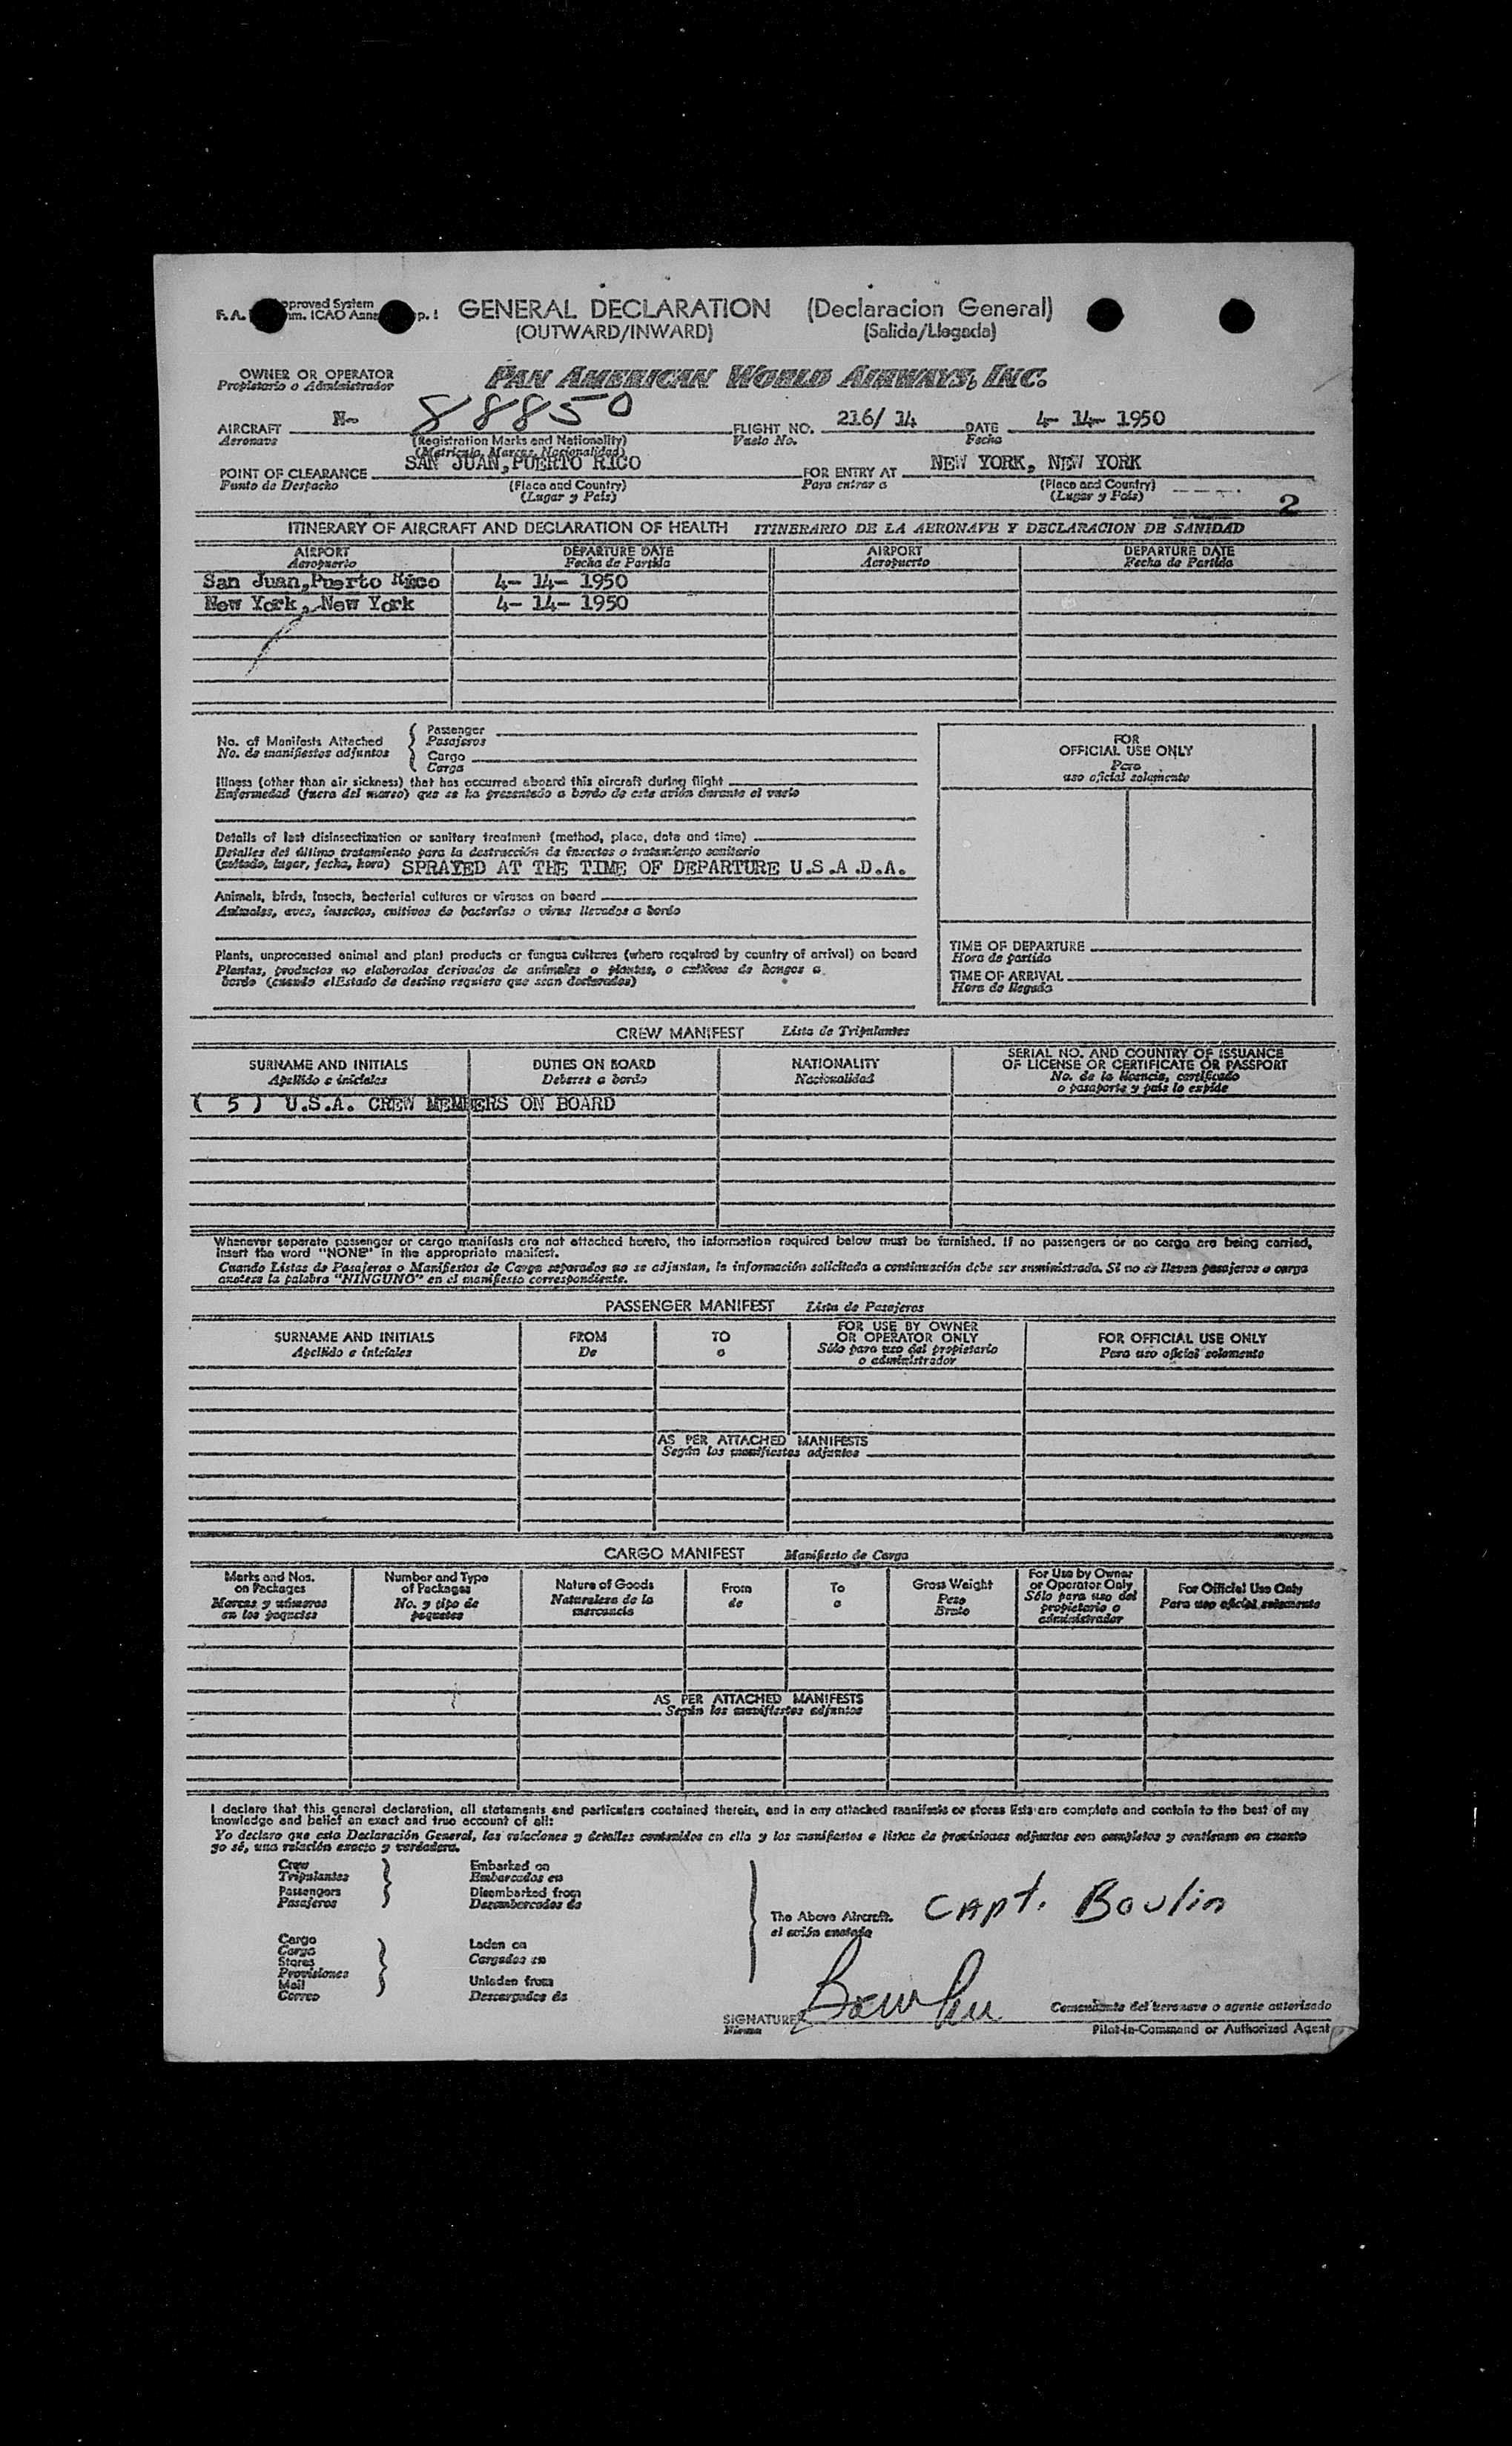 F. A. pproved System
m. ICAO Ann p. 1
GENERAL DECLARATION (Declaracion General)
(OUTWARD/INWARD) (Salida/Llegada)
OWNER OR OPERATOR PAN AMERICAN WORLD AIRWAYS, INC.
Propietario o Administrador
AIRCRAFT N- 88850 FLIGHT NO. 216/ 14 DATE 4- 14- 1950
Aeronave (Registration Marks and Nationality) Vuelo No. Fecha
(Matricula, Marcas, Nacionalidad)
POINT OF CLEARANCE SAN JUAN,PUERTO RICO FOR ENTRY AT NEW YORK, NEW YORK
Punto de Despacho (Place and Country) Para entrar a (Place and Country)
(Lugar y País) (Lugar y País) 2
ITINERARY OF AIRCRAFT AND DECLARATION OF HEALTH ITINERARIO DE LA AERONAVE Y DECLARACION DE SANIDAD
AIRPORT DEPARTURE DATE AIRPORT DEPARTURE DATE
Aeropuerto Fecha de Partida Aeropuerto Fecha de Partida
San Juan,Puerto Rico 4- 14- 1950
New York, New York 4- 14- 1950
No. of Manifests Attached Passenger
No. de manifiestos adjuntos Pasajeros
Cargo
Carga
FOR
OFFICIAL USE ONLY
Para
uso oficial solamente
Illness (other than air sickness) that has occurred aboard this aircraft during flight
Enfermedad (fuera del mareo) que se ha presentado a bordo de este avión durante el vuelo
Details of last disinsectization or sanitary treatment (method, place, date and time)
Detalles del último tratamiento para la destrucción de insectos o tratamiento sanitario
(método, lugar, fecha, hora) SPRAYED AT THE TIME OF DEPARTURE U.S.A.D.A.
Animals, birds, insects, bacterial cultures or viruses on board
Animales, aves, insectos, cultivos de bacterias o virus llevados a bordo
Plants, unprocessed animal and plant products or fungus cultures (where required by country of arrival) on board
Plantas, productos no elaborados derivados de animales o plantas, o cultivos de hongos a
bordo (cuando elEstado de destino requiera que sean declarados)
TIME OF DEPARTURE
Hora de partida
TIME OF ARRIVAL
Hora de llegada
CREW MANIFEST Lista de Tripulantes
SURNAME AND INITIALS DUTIES ON BOARD NATIONALITY SERIAL NO. AND COUNTRY OF ISSUANCE
OF LICENSE OR CERTIFICATE OR PASSPORT
Apellido e iniciales Deberes a bordo Nacionalidad No. de la licencia, certificado
o pasaporte y país lo expide
( 5 ) U.S.A. CREW MEMBERS ON BOARD
Whenever separate passenger or cargo manifests are not attached hereto, the information required below must be furnished. If no passengers or no cargo are being carried,
insert the word "NONE" in the appropriate manifest.
Cuando Listas de Pasajeros o Manifiestos de Carga separados no se adjuntan, la información solicitada a continuación debe ser suministrada. Si no se llevan pasajeros o carga
anotese la palabra "NINGUNO" en el manifiesto correspondiente.
PASSENGER MANIFEST Lista de Pasajeros
SURNAME AND INITIALS FROM TO FOR USE BY OWNER
OR OPERATOR ONLY FOR OFFICIAL USE ONLY
Apellido e iniciales De a Sólo para uso del propietario
o administrador Para uso oficial solamente
AS PER ATTACHED MANIFESTS
Según los manifiestos adjuntos
CARGO MANIFEST Manifiesto de Carga
Marks and Nos.
on Packages
Marcas y números
en los paquetes
Number and Type
of Packages
No. y tipo de
paquetes
Nature of Goods
Naturaleza de la
mercancía
From
de
To
a
Gross Weight
Peso
Bruto
For Use by Owner
or Operator Only
Sólo para uso del
propietario o
administrador
For Official Use Only
Para uso oficial solamente
AS PER ATTACHED MANIFESTS
Según los manifiestos adjuntos
I declare that this general declaration, all statements and particulars contained therein, and in any attached manifests or stores lists are complete and contain to the best of my
knowledge and belief an exact and true account of all:
Yo declaro que esta Declaración General, las relaciones y detalles contenidos en ella y los manifiestos e listas de provisiones adjuntas son completos y contienen en cuanto
yo sé, una relación exacta y verdadera.
Crew Embarked on
Tripulantes Embarcados en
Passengers Disembarked from
Pasajeros Desembarcados de
The Above Aircraft. Capt. Boulin
el avión anotado
Cargo Laden on
Carga Cargados en
Stores
Provisiones
Mail Unladen from
Correo Descargados de
SIGNATURE
Firma
Comandante del aeronave o agente autorizado
Pilot-in-Command or Authorized Agent